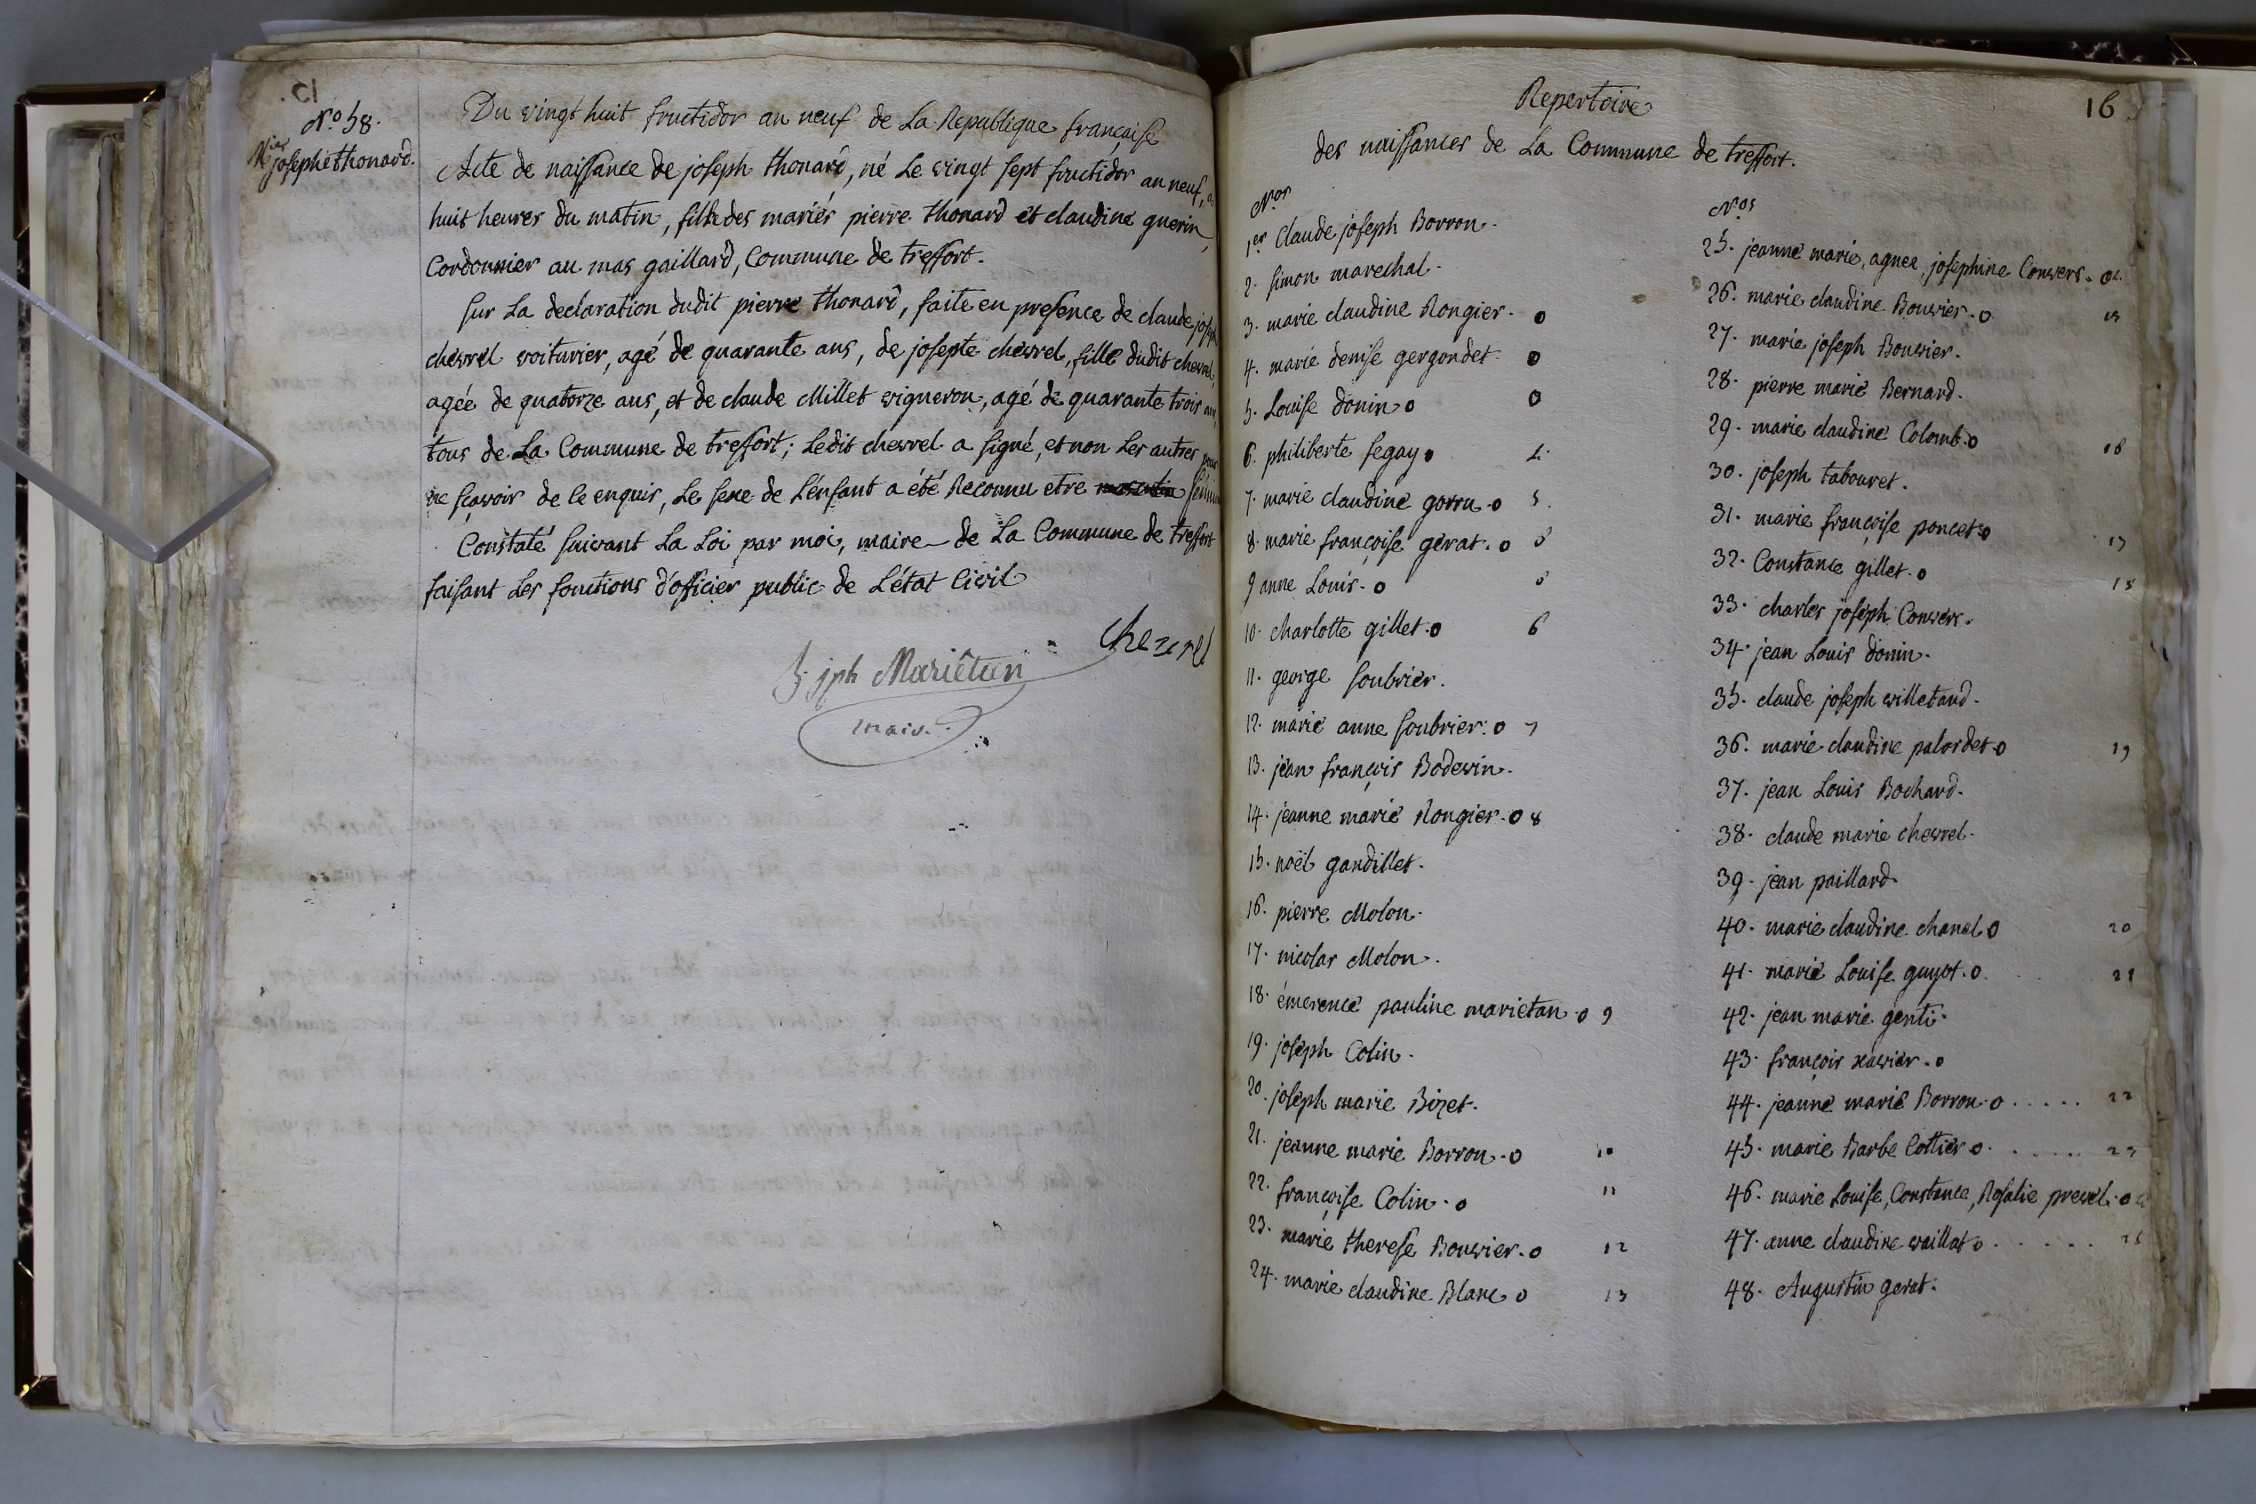 15.
N.o 58.
M.ie josephe thonard.
Du vingt huit fructidor an neuf de La Republique française
Acte de naissance de joseph thonard, né Le vingt sept fructidor an neuf, a
huit heures du matin, fille des mariés pierre thonard et claudine guerin,
Cordonnier au mas gaillard, Commune de treffort.
Sur La declaration dudit pierre thonard, faite en presence de claude joseph
chevrel voiturier, agé de quarante ans, de josepte chevrel, fille dudit chevrel,
agée de quatorze ans, et de claude Millet vigneron, agé de quarante trois ans,
tous de La Commune de treffort; Ledit chevrel a signé, et non Les autres pour
ne sçavoir de ce enquis, Le sexe de L'enfant a été Reconnu etre masculin feminin
Constaté suivant La Loi par moi, maire de La Commune de treffort
faisant Les fonctions d'officier public de L'état Civil
Chevrel
jph Mariêtan
maire
Repertoire
16
des naissances de La Commune de treffort.
N.os
1.er Claude joseph Borron.
2. simon marechal.
3. marie claudine Rongier. o
4. marie denise gergondet. o
5. Louise donin o o
6. philiberte segay o 4.
7. marie claudine gorru. o 5.
8. marie françoise gerat. o
9 anne Louis. o
10. charlotte gillet. o 6
11. george soubrier.
12. marie anne soubrier. o 7
13. jean françois Bodevin.
14. jeanne marie Rongier. o 8
15. noël gandillet.
16. pierre Molon.
17. nicolas Molon.
18. émerence pauline marietan. o 9
19. joseph Colin.
20. joseph marie Bizet.
21. jeanne marie Borron. o 10
22. françoise Colin. o 11
23. marie therese Bouvier. o 12
24. marie claudine Blanc o 13
N.os
25. jeanne marie, agnee, josephine Convers. o
26. marie claudine Bouvier. o 15
27. marie joseph Bouvier.
28. pierre marie Bernard.
29. marie claudine Colomb. o 16
30. joseph tabouret.
31. marie françoise poncet. o 17
32. Constance gillet. o 18
33. charles joseph Convers.
34. jean Louis donin.
35. claude joseph villetard.
36. marie claudine palordet o 19
37. jean Louis Bochard.
38. claude marie chevrel.
39. jean paillard.
40. marie claudine chanel o 20
41. marie Louise guyot. o 21
42. jean marie genti.
43. françois xavier. o
44. jeanne marie Borron. o ..... 22
45. marie Barbe Cottier o ..... 23
46. marie Louise, Constance, Rosalie prevel. o
47. anne claudine vaillat o ..... 25
48. Augustin gerat.